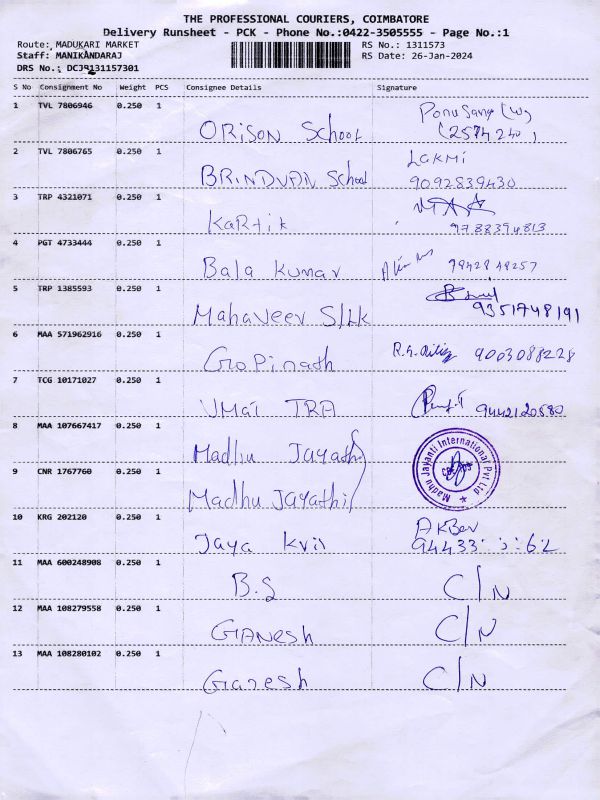 THE PROFESSIONAL COURIERS, COIMBATORE
Delivery Runsheet - PCK - Phone No.:0422-3505555 - Page No.:1
Route: MADUKARI MARKET RS No.: 1311573
Staff: MANIKANDARAJ RS Date: 26-Jan-2024
DRS No.: DCJR131157301
S No Consignment No Weight PCS Consignee Details Signature
1 TVL 7806946 0.250 1 ORiSON School (2574240)
2 TVL 7806765 0.250 1 BRINDVAN School LaKMi 9092839430
3 TRP 4321071 0.250 1 KaRtik 9788394813
4 PGT 4733444 0.250 1 Bala Kumar 9842849257
5 TRP 1385593 0.250 1 MahaVeer S/LK 9351748191
6 MAA 571962916 0.250 1 GoPinath 9003088228
7 TCG 10171027 0.250 1 UMai TRA 9442120580
8 MAA 107667417 0.250 1 Madhu Jayathi
Madhu Jayanti International Pvt Ltd
9 CNR 1767760 0.250 1 Madhu Jayathi
10 KRG 202120 0.250 1 Jaya AKBer
11 MAA 600248908 0.250 1 B.S C/N
12 MAA 108279558 0.250 1 GANesh C/N
13 MAA 108280102 0.250 1 Ganesh C/N